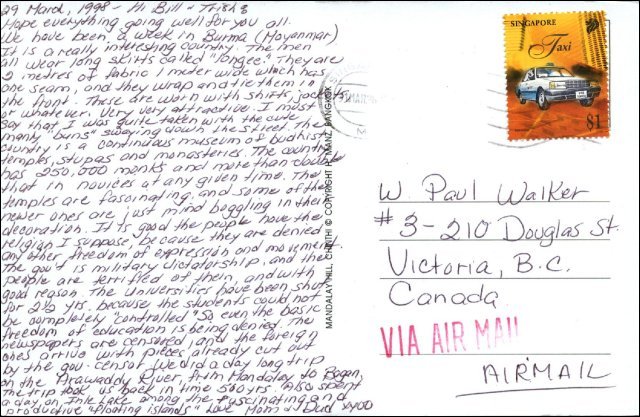 29 March, 1998 - Hi Bill - Trish &
Hope everything going well for you all.
We have been a week in Burma (Moyanmar)
It is a really interesting country. The men
all wear long skirts called "longee". They are
2 metres of fabric 1 meter wide which has
one seam, and they wrap and tie them in
the front. These are worn with shirts, jackets,
or whatever. Very very attractive. I must
say that I was quite taken with the cute
manly "buns" swaying down the street. The
country is a continuous museum of budhist
temples, stupas and monasteries. The country
has 250,000 monks and more than double
that in novices at any given time. The
temples are fascinating, and some of the
newer ones are just mind boggling in their
decoration. It is good the people have the
religion I suppose, because they are denied
any other freedom of expression and movement.
The gov't is military dictatorship, and the
people are terrified of them, and with
good reason. The universities have been shut
for 2½ yrs. because the students could not
be completely "controlled" So even the basic
freedom of education is being denied. The
newspapers are censored, and the foreign
ones arrive with pieces already cut out
by the gov. censor. We did a day long trip
on the Arawaddy River, from Mandalay to Bagan,
the trip took us back in time 500 yrs. Also spent
a day on Inle Lake among the fascinating and
productive "floating islands" Love Mom & Dad xxoo
MANDALAY HILL, CHINTHI © COPYRIGHT P. MANZ, BANGKOK
SINGAPORE
Taxi
$1
W. Paul Walker
#3-210 Douglas St.
Victoria, B.C.
Canada
VIA AIR MAIL
AIRMAIL